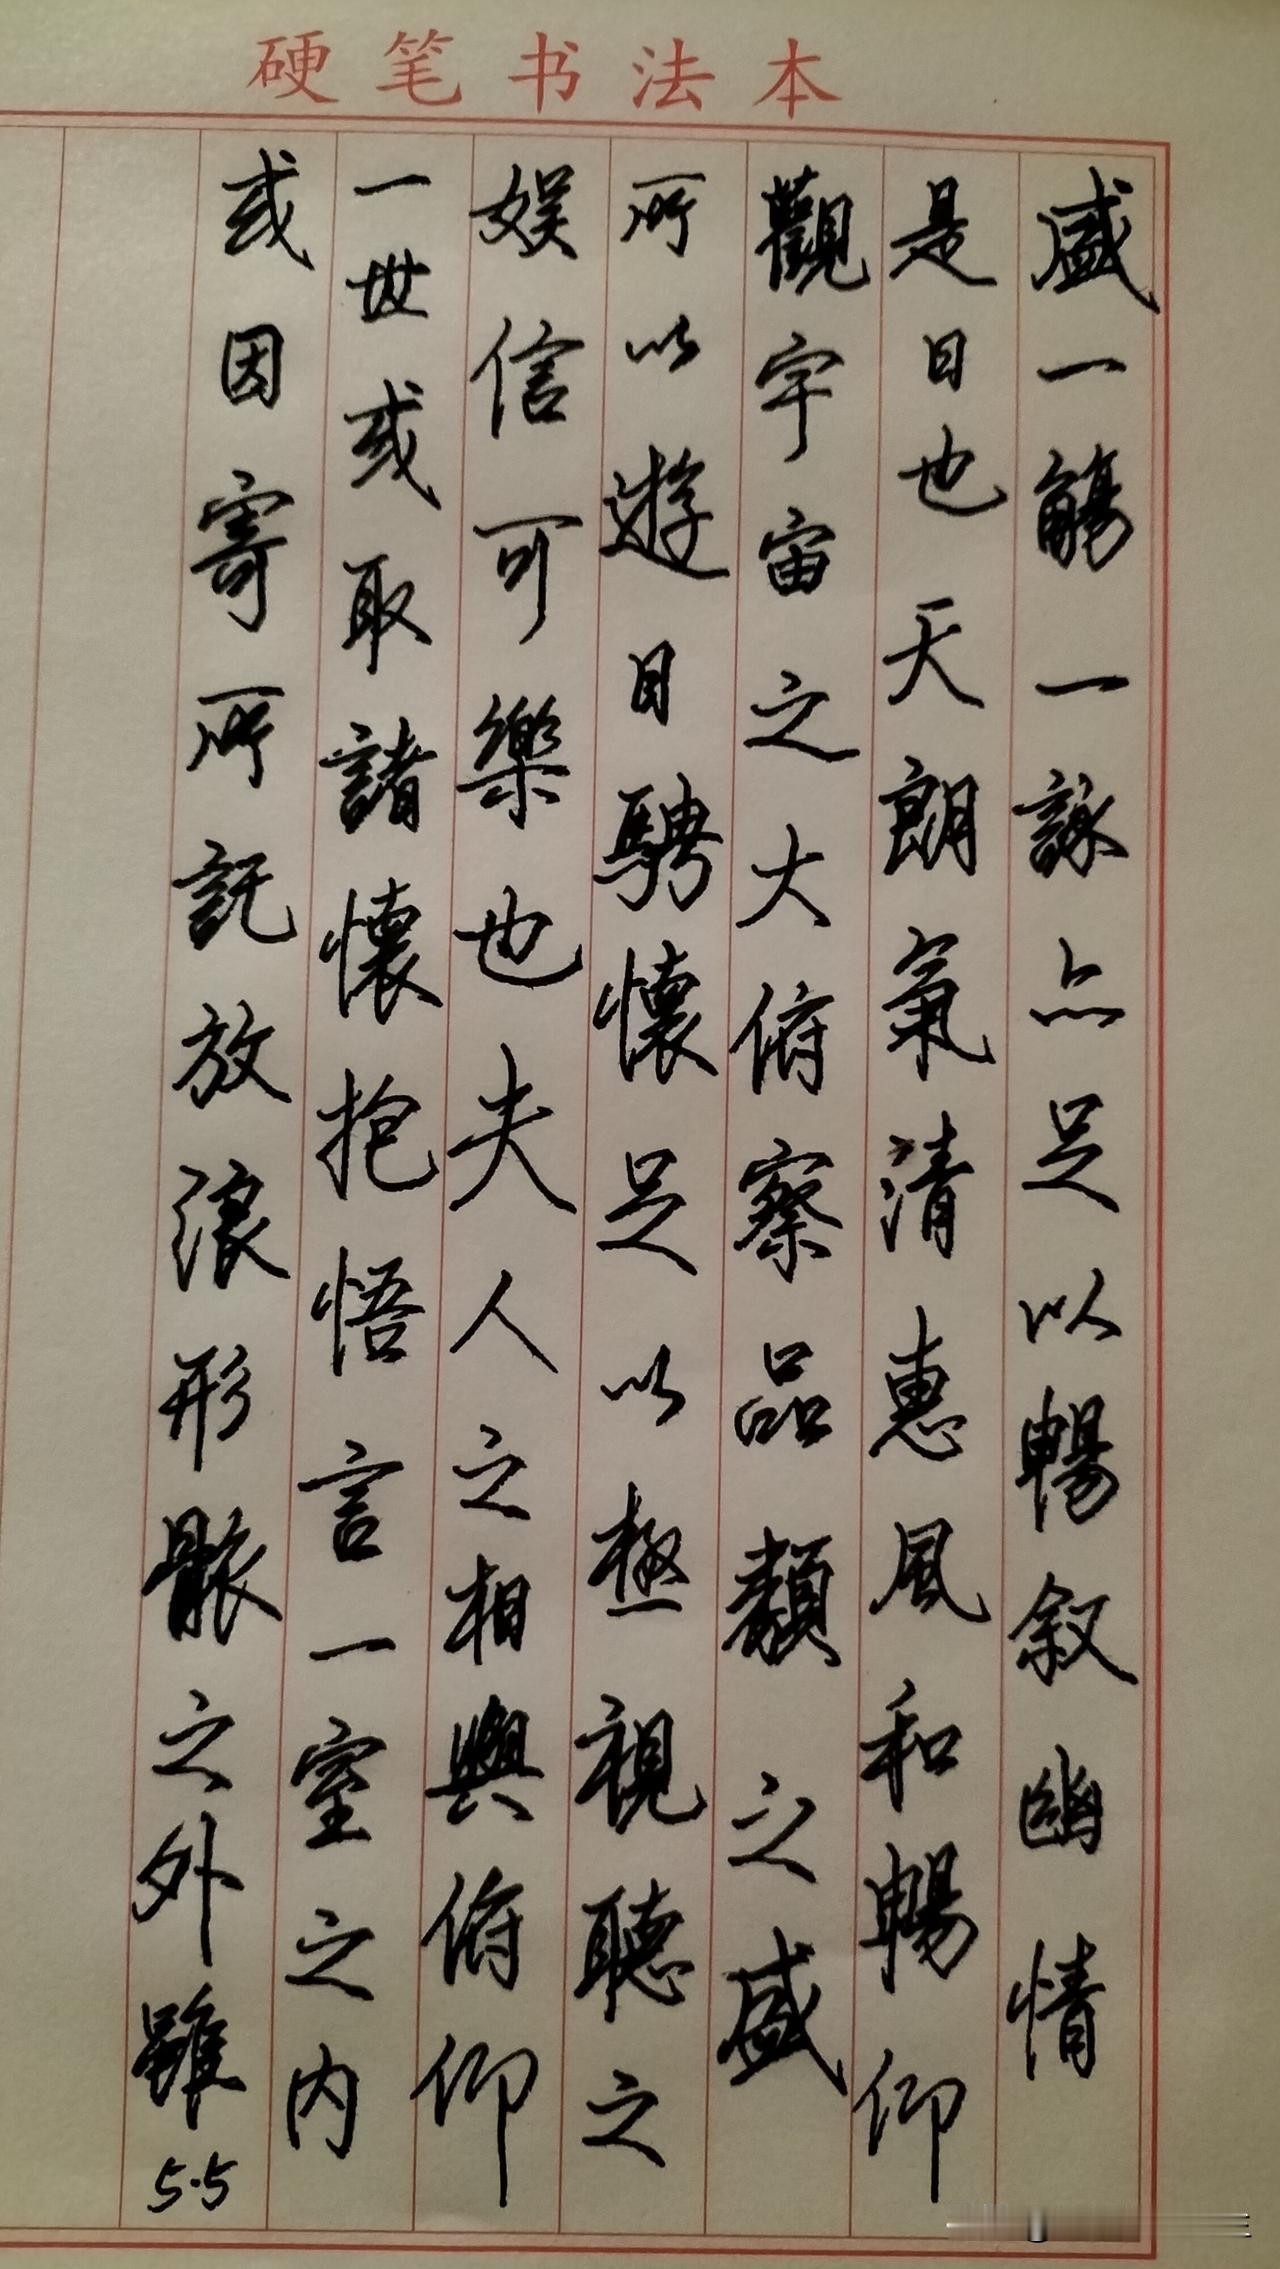 硬笔书法本
盛一觴一詠亦足以暢叙幽情
是日也天朗氣清惠風和暢仰
觀宇宙之大俯察品類之盛
所以遊目騁懷足以極視聽之
娱信可樂也夫人之相與俯仰
一世或取諸懷抱悟言一室之内
或因寄所託放浪形骸之外雖
5.5